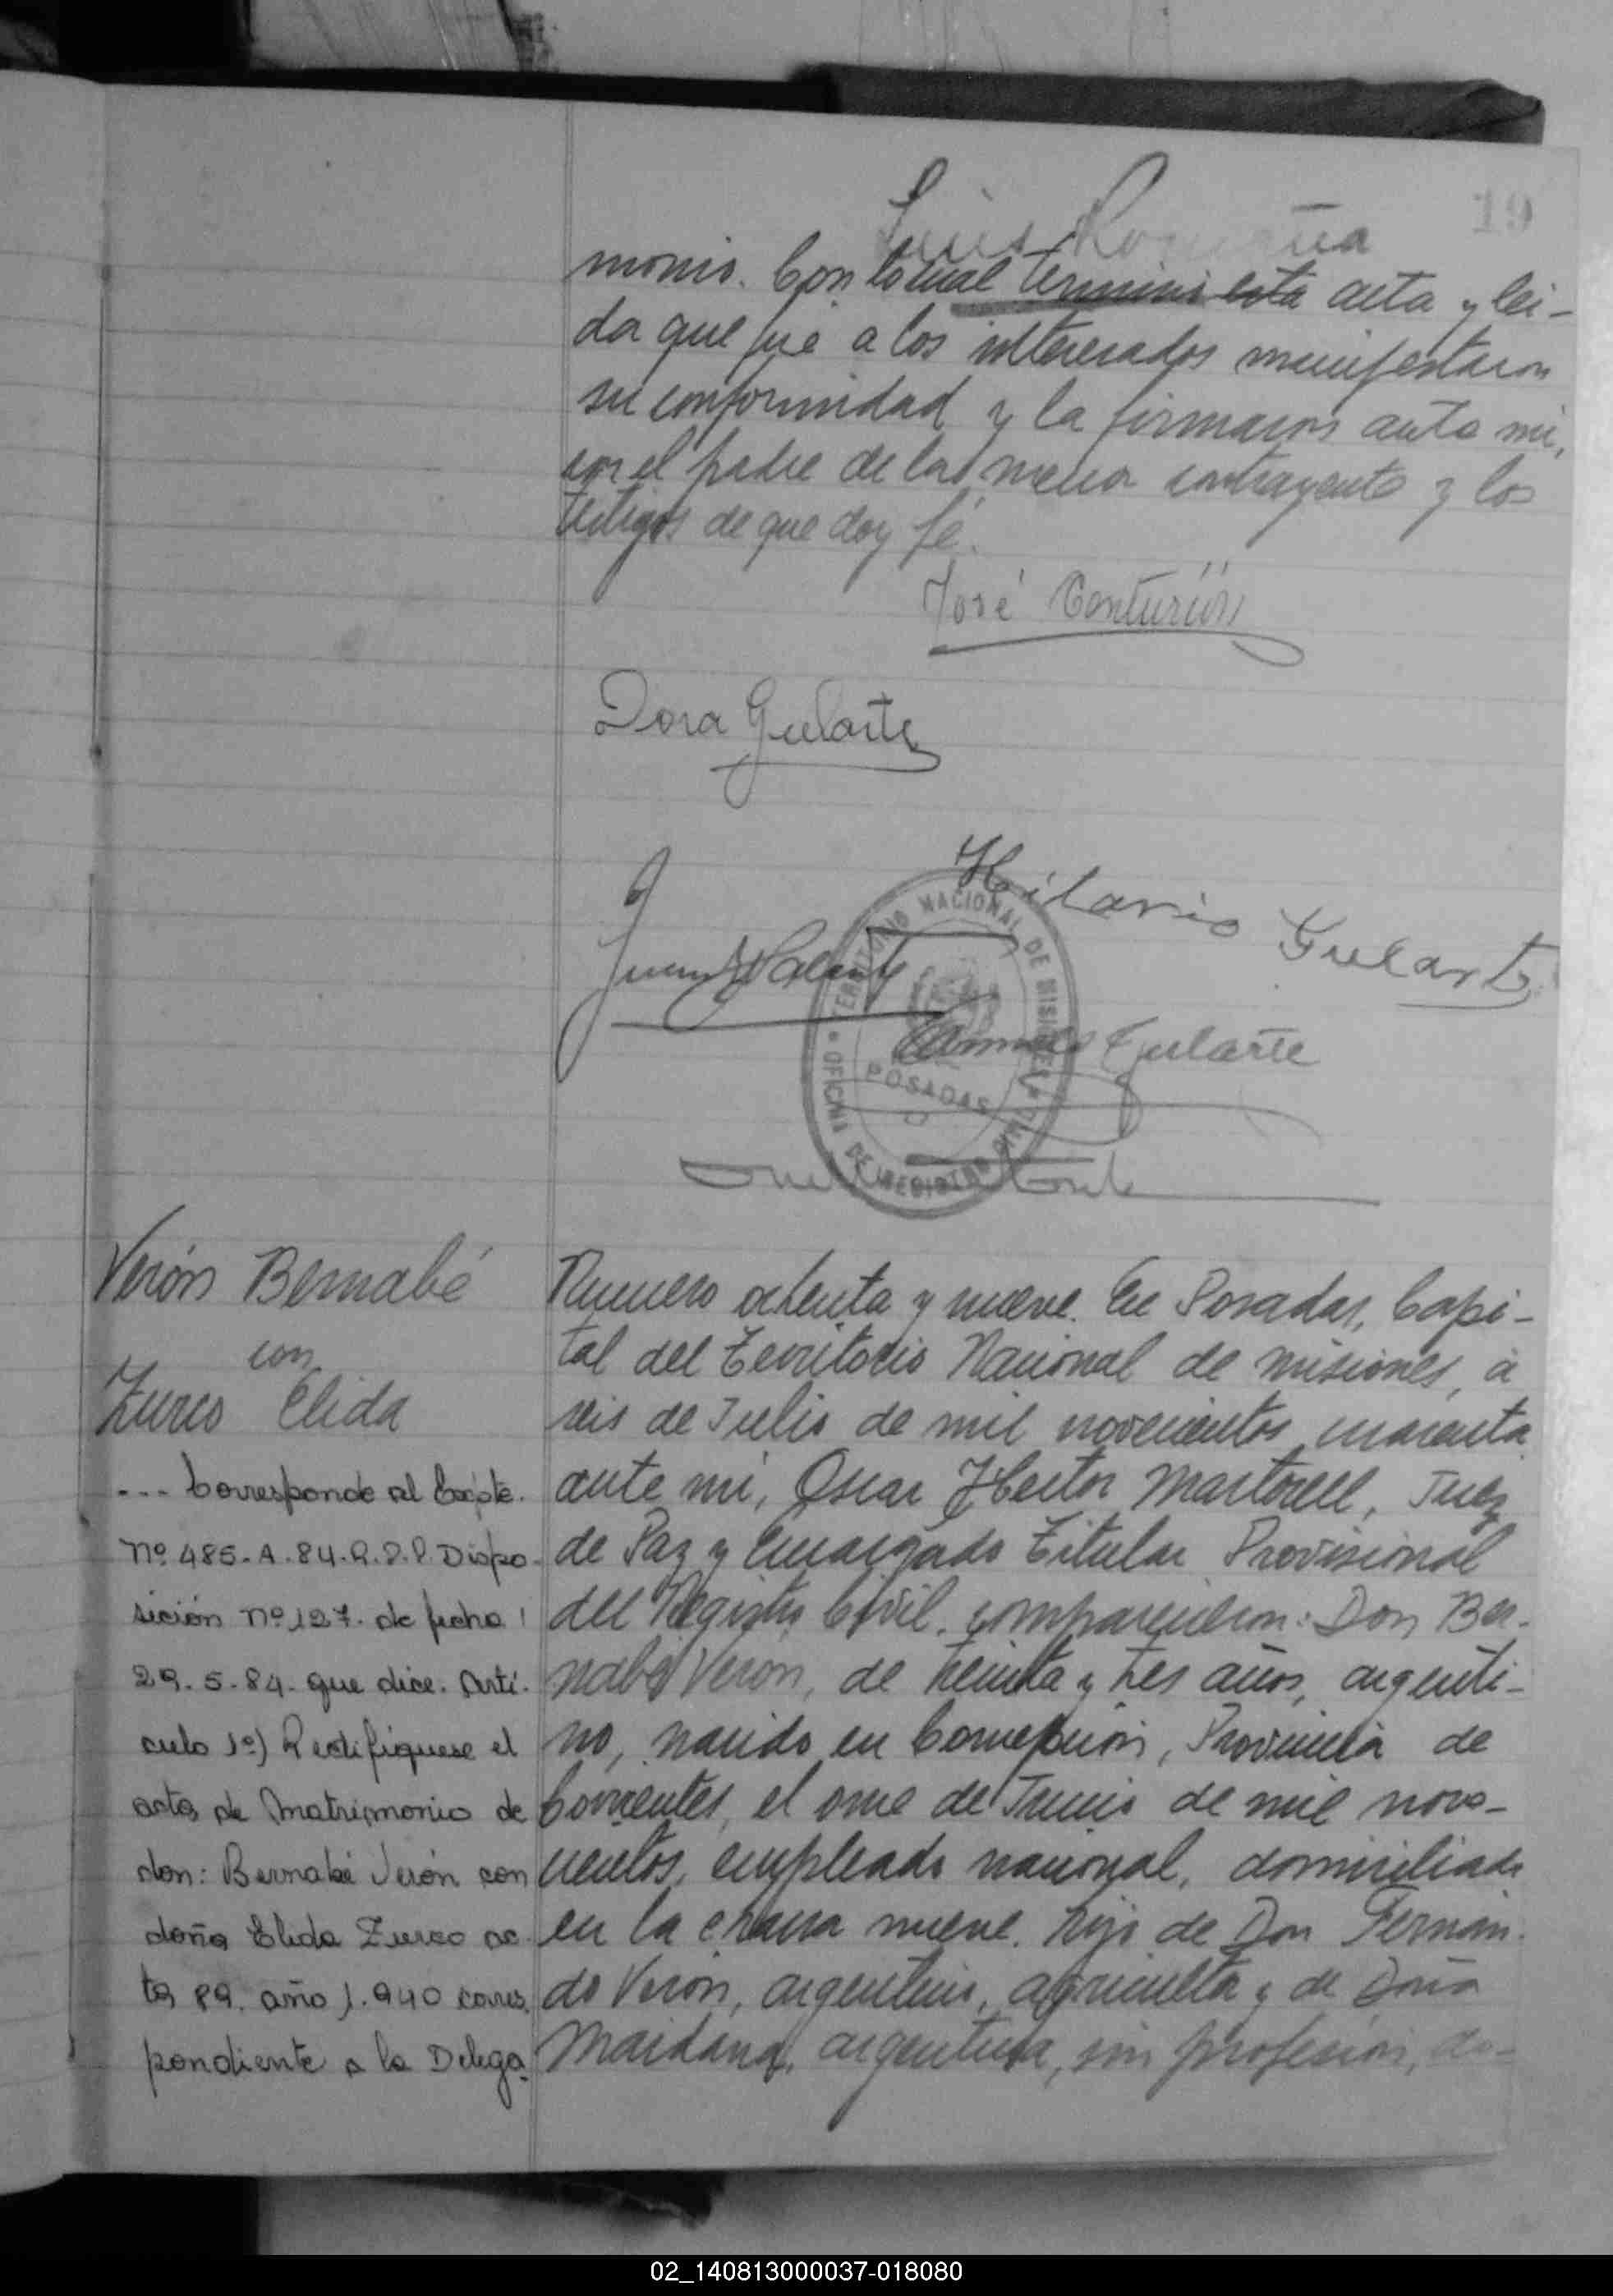 19
Luis
monio. Con lo cual terminó esta acta y lei-
da que fué a los interesados manifestaron
su conformidad y la firmaron ante mi,
con el padre de la menor contrayente y los
testigos de que doy fé.
José Centurión
Dora Gularte
Hilario Gularte
Juan
Gularte
TERRITORIO NACIONAL DE MISIONES
POSADAS
OFICINA DE REGISTRO CIVIL
Verón Bernabé
con
Zurco Elida
... Corresponde al Expte.
Nº 485-A-84-R.P.P. Dispo-
sición nº 127. de fecha
29-5-84. que dice. Artí-
culo 1º) Rectifíquese el
acta de Matrimonio de
don: Bernabé Verón con
doña Elida Zurco ac-
ta 89. año 1.940 corres-
pondiente a la Delega-
Numero ochenta y nueve. En Posadas, Capi-
tal del Territorio Nacional de Misiones, á
seis de Julio de mil novecientos cuarenta
ante mi, Oscar Hector Martorell, Juez
de Paz y Encargado Titular Provisional
del Registro Civil, comparecieron: Don Ber-
nabé Verón, de treinta y tres años, argenti-
no, nacido en Concepción, Provincia de
Corrientes, el once de Junio de mil nove-
cientos, empleado nacional, domiciliado
en la chacra nueve. hijo de Don Fernan-
do Verón, argentino, agricultor y de Doña
Maidana, argentina, sin profesión, do-
02_140813000037-018080